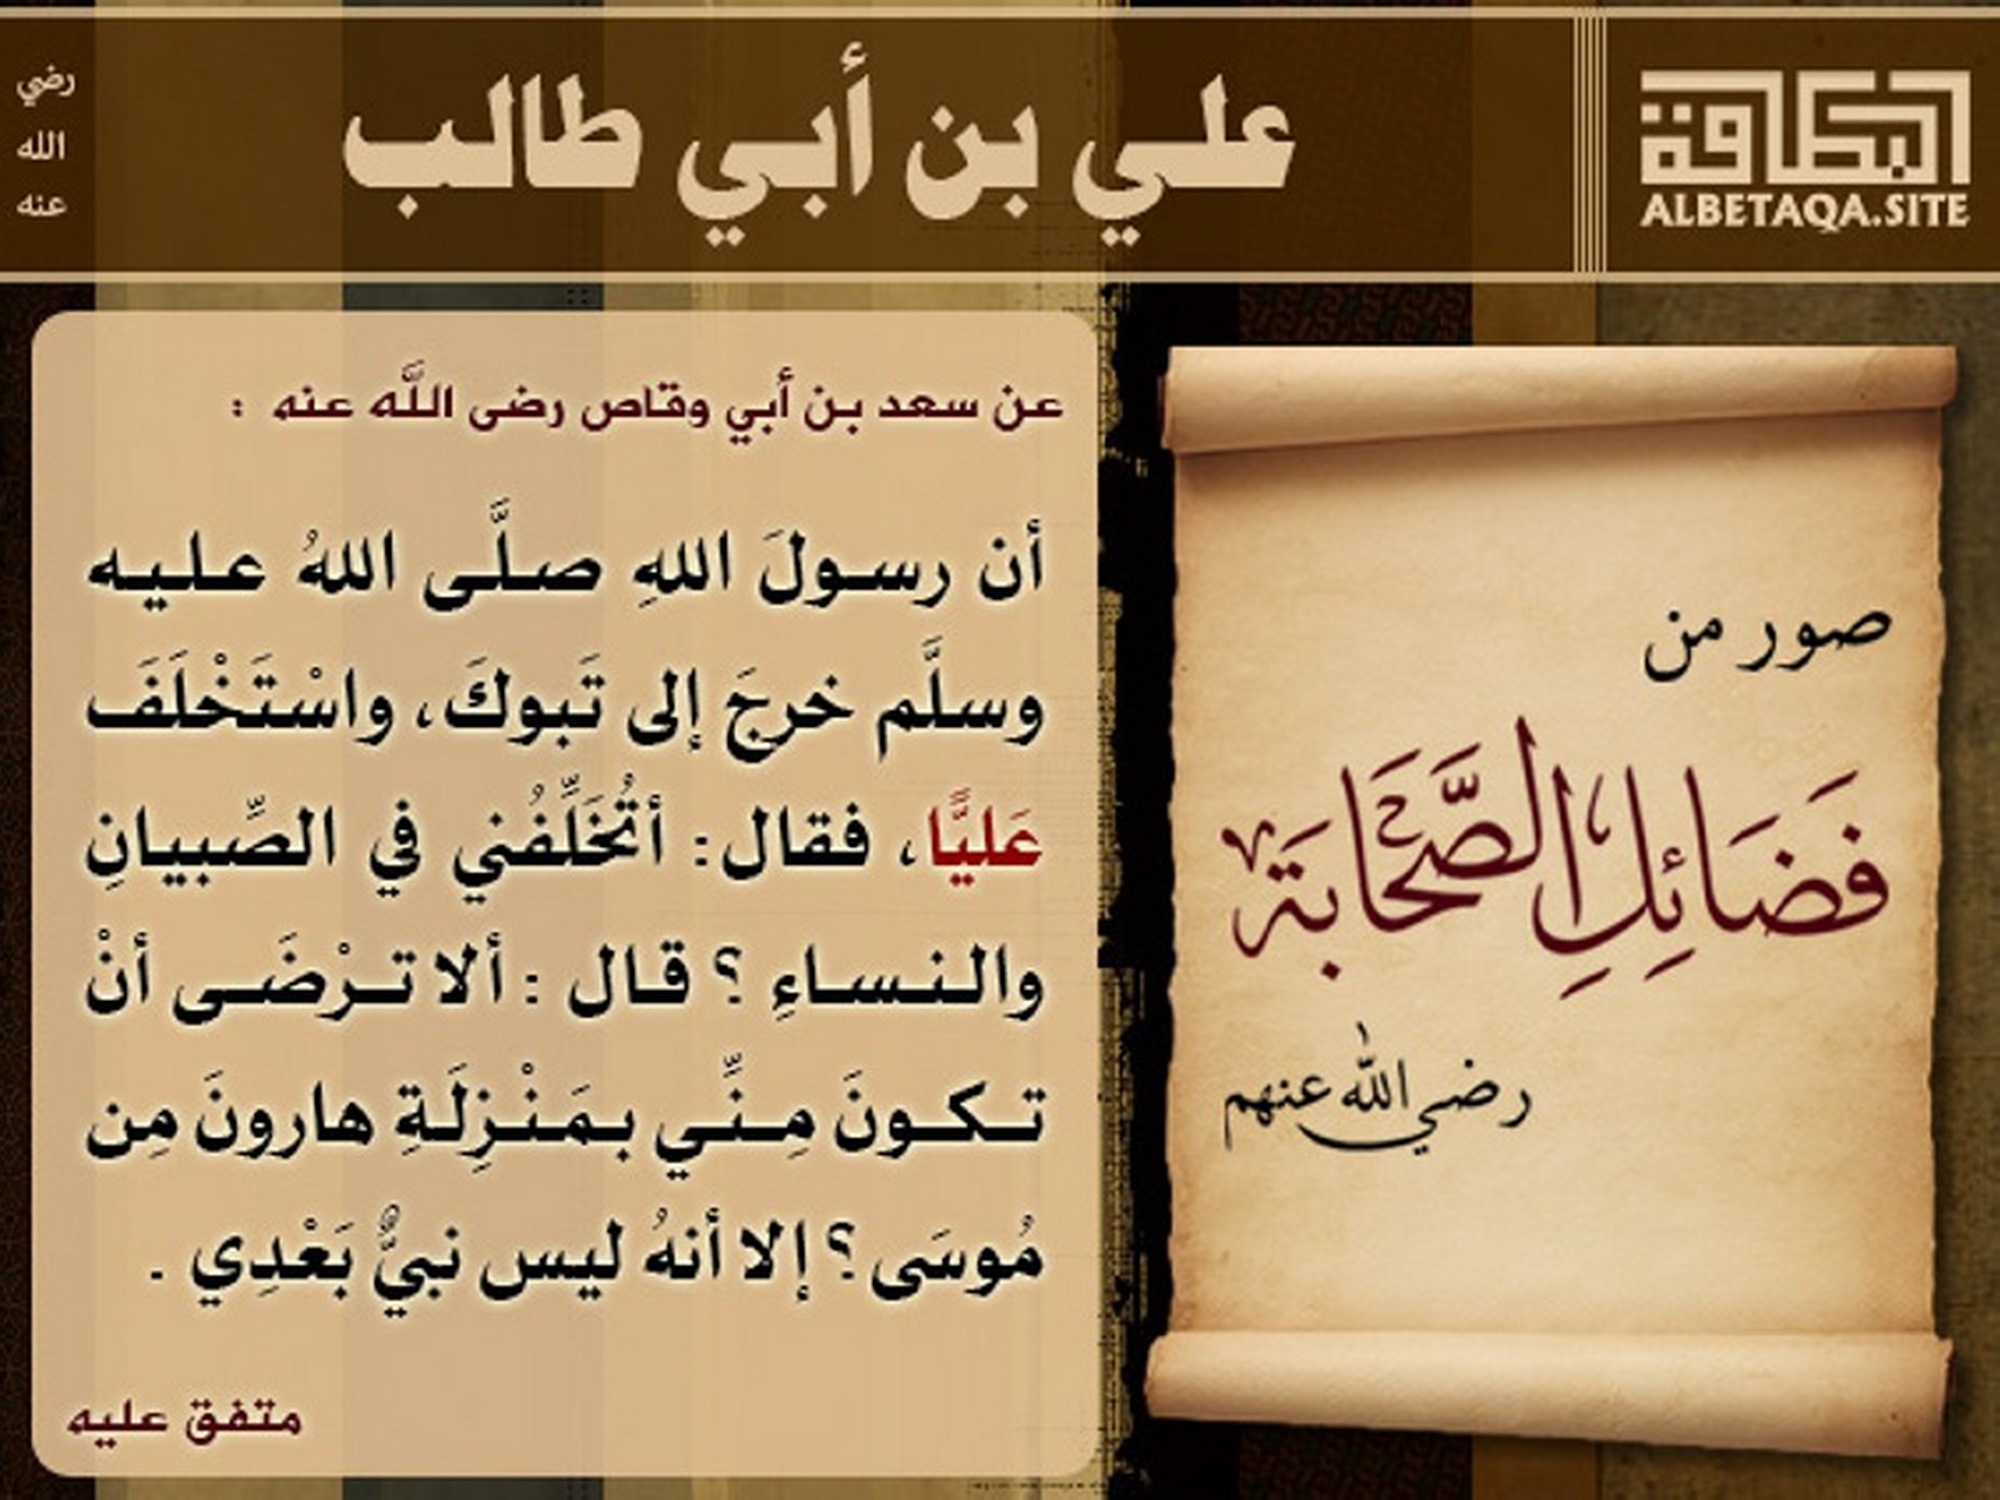 البطاقة
ALBETAQA.SITE
علي بن أبي طالب
رضي
الله
عنه
صور من
فَضَائِلِ الصَّحَابَة
رضي الله عنهم
عن سعد بن أبي وقاص رضى اللَّه عنه :
أن رسولَ اللهِ صلَّى اللهُ عليه
وسلَّم خرجَ إلى تَبوكَ، واسْتَخْلَفَ
عَليًّا، فقال: أتُخَلِّفُني في الصِّبيانِ
والنساءِ ؟ قال : ألا ترْضَى أنْ
تكونَ مِنِّي بمَنْزِلَةِ هارونَ مِن
مُوسَى ؟ إلا أنهُ ليس نبيٌّ بَعْدِي .
متفق عليه